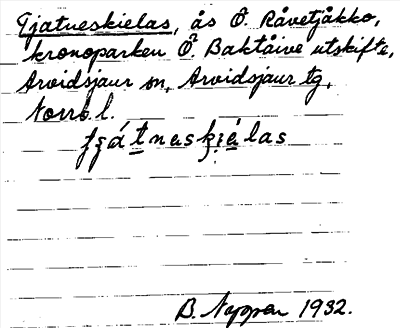 Tjatneskielas, ås Ö. Råvetjåkko,
kronoparken Ö. Baktåive utskifte,
Arvidsjaur sn, Arvidsjaur tg,
Norrb l.
tjátnaskiélas
B. 1932.